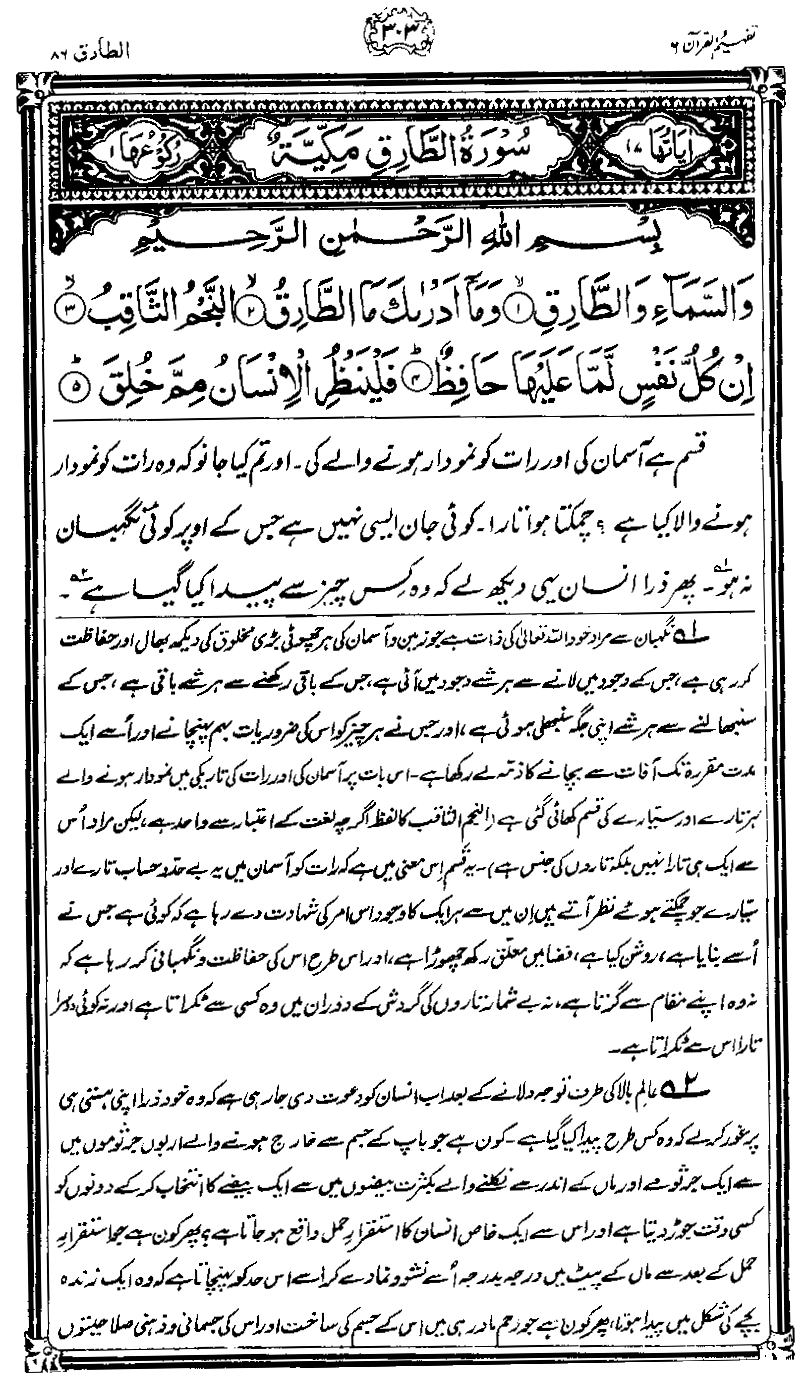 تفہیم القرآن ۶
۳۰۳
الطارق ۸۶
اٰیَاتُهَا ۱۷
سُوْرَةُ الطَّارِقِ مَكِّیَّةٌ
رُكُوْعُهَا ۱
بِسْمِ اللهِ الرَّحْمٰنِ الرَّحِیْمِ
وَالسَّمَآءِ وَالطَّارِقِ ۱ وَمَآ اَدْرٰىكَ مَا الطَّارِقُ ۲ النَّجْمُ الثَّاقِبُ ۳
اِنْ كُلُّ نَفْسٍ لَّمَّا عَلَیْهَا حَافِظٌ ۴ فَلْیَنْظُرِ الْاِنْسَانُ مِمَّ خُلِقَ ۵
قسم ہے آسمان کی اور رات کو نمودار ہونے والے کی۔ اور تم کیا جانو کہ وہ رات کو نمودار
ہونے والا کیا ہے ؟ چمکتا ہوا تارا۔ کوئی جان ایسی نہیں ہے جس کے اوپر کوئی نگہبان
نہ ہو۱۔ پھر ذرا انسان یہی دیکھ لے کہ وہ کس چیز سے پیدا کیا گیا ہے۲۔
۱ نگہبان سے مراد خود اللہ تعالیٰ کی ذات ہے جو زمین و آسمان کی ہر چھوٹی بڑی مخلوق کی دیکھ بھال اور حفاظت
کر رہی ہے، جس کے وجود میں لانے سے ہر شے وجود میں آئی ہے، جس کے باقی رکھنے سے ہر شے باقی ہے، جس کے
سنبھالنے سے ہر شے اپنی جگہ سنبھلی ہوئی ہے، اور جس نے ہر چیز کو اس کی ضروریات بہم پہنچانے اور اُسے ایک
مدت مقررہ تک آفات سے بچانے کا ذمہ لے رکھا ہے۔ اس بات پر آسمان کی اور رات کی تاریکی میں نمودار ہونے والے
ہر تارے اور سیارے کی قسم کھائی گئی ہے (النجم الثاقب کا لفظ اگرچہ لغت کے اعتبار سے واحد ہے، لیکن مراد اُس
سے ایک ہی تارا نہیں بلکہ تاروں کی جنس ہے)۔ یہ قسم اِس معنی میں ہے کہ رات کو آسمان میں یہ بے حد و حساب تارے اور
سیارے جو چمکتے ہوئے نظر آتے ہیں اِن میں سے ہر ایک کا وجود اس امر کی شہادت دے رہا ہے کہ کوئی ہے جس نے
اُسے بنایا ہے، روشن کیا ہے، فضا میں معلّق رکھ چھوڑا ہے، اور اس طرح اس کی حفاظت و نگہبانی کر رہا ہے کہ
نہ وہ اپنے مقام سے گرتا ہے، نہ بے شمار تاروں کی گردش کے دَوران میں وہ کسی سے ٹکراتا ہے اور نہ کوئی دوسرا
تارا اس سے ٹکراتا ہے۔
۲ عالمِ بالا کی طرف توجہ دلانے کے بعد اب انسان کو دعوت دی جا رہی ہے کہ وہ خود ذرا اپنی ہستی ہی
پر غور کر لے کہ وہ کس طرح پیدا کیا گیا ہے۔ کون ہے جو باپ کے جسم سے خارج ہونے والے اربوں جرثوموں میں
سے ایک جرثومے اور ماں کے اندر سے نکلنے والے بکثرت بیضوں میں سے ایک بیضے کا انتخاب کر کے دونوں کو
کسی وقت جوڑ دیتا ہے اور اس سے ایک خاص انسان کا استقرارِ حمل واقع ہو جاتا ہے؟ پھر کون ہے جو استقرارِ
حمل کے بعد سے ماں کے پیٹ میں درجہ بدرجہ اُسے نشوونما دے کر اسے اس حد کو پہنچاتا ہے کہ وہ ایک زندہ
بچے کی شکل میں پیدا ہو؟ پھر کون ہے جو رحمِ مادر ہی میں اس کے جسم کی ساخت اور اس کی جسمانی و ذہنی صلاحیتوں